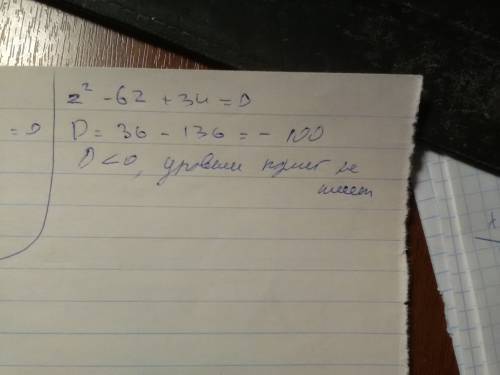 z² - 6z + 34 = 0
= 0
D = 36 - 136 = - 100
D < 0, корней не
имеет